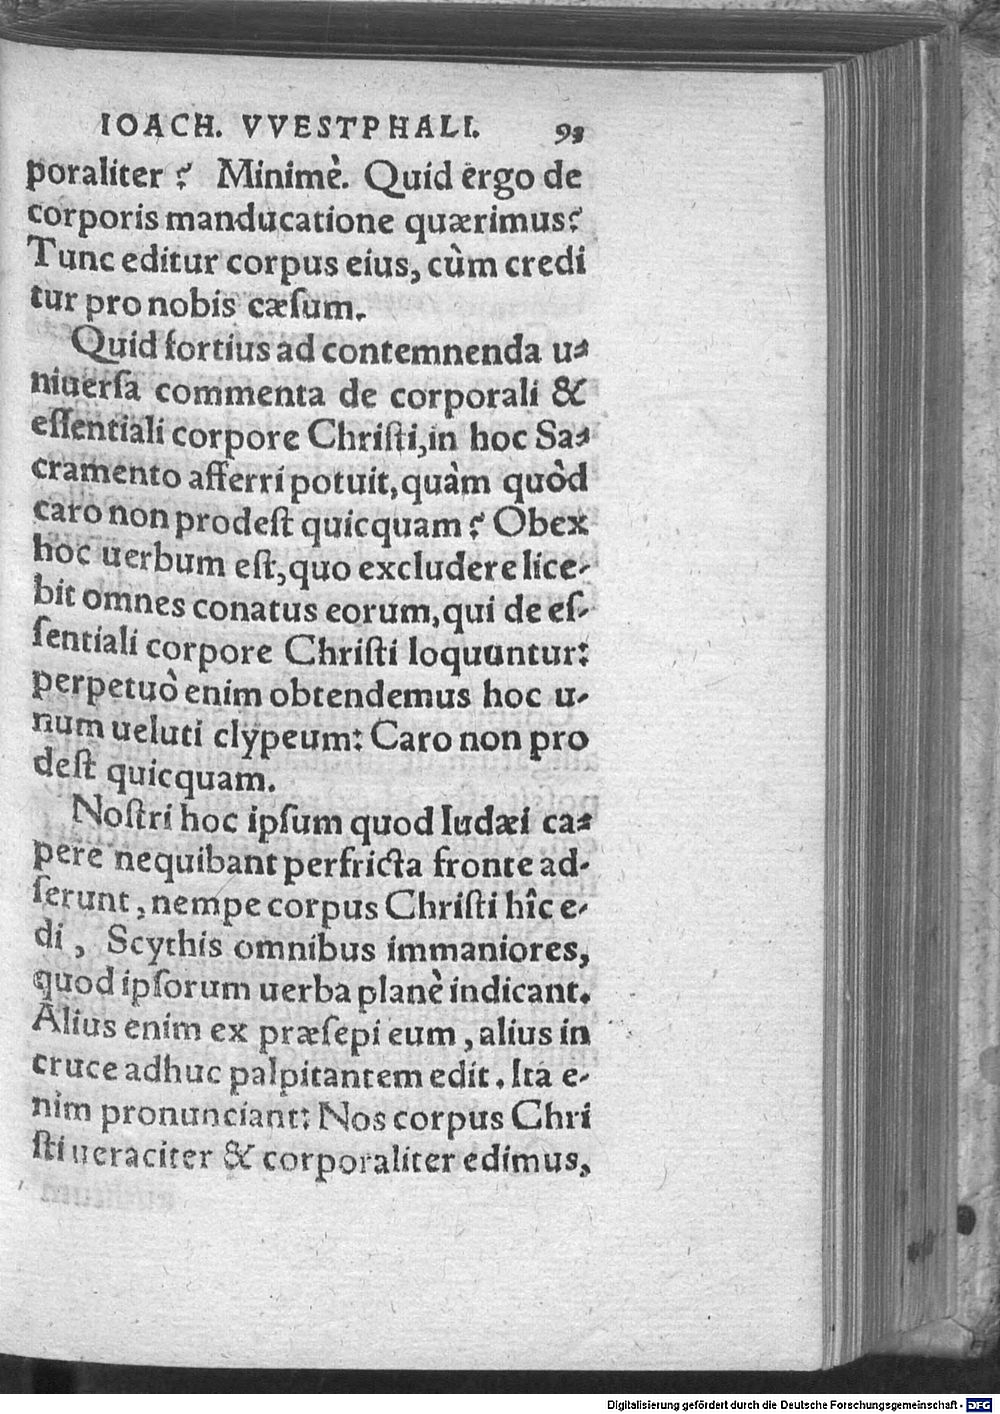 IOACH. VVESTPHALI. 93
poraliter? Minimè. Quid ergo de
corporis manducatione quærimus?
Tunc editur corpus eius, cùm credi
tur pro nobis cæſum.
Quid fortius ad contemnenda u-
niuerſa commenta de corporali &
eſſentiali corpore Chriſti, in hoc Sa-
cramento afferri potuit, quàm quòd
caro non prodeſt quicquam? Obex
hoc uerbum eſt, quo excludere lice-
bit omnes conatus eorum, qui de eſ-
ſentiali corpore Chriſti loquuntur:
perpetuò enim obtendemus hoc u-
num ueluti clypeum: Caro non pro
deſt quicquam.
Noſtri hoc ipſum quod Iudæi ca-
pere nequibant perfricta fronte ad-
ſerunt, nempe corpus Chriſti hîc e-
di, Scythis omnibus immaniores,
quod ipſorum uerba planè indicant.
Alius enim ex præſepi eum, alius in
cruce adhuc palpitantem edit. Ita e-
nim pronunciant: Nos corpus Chri
ſti ueraciter & corporaliter edimus,
Digitalisierung gefördert durch die Deutsche Forschungsgemeinschaft - DFG